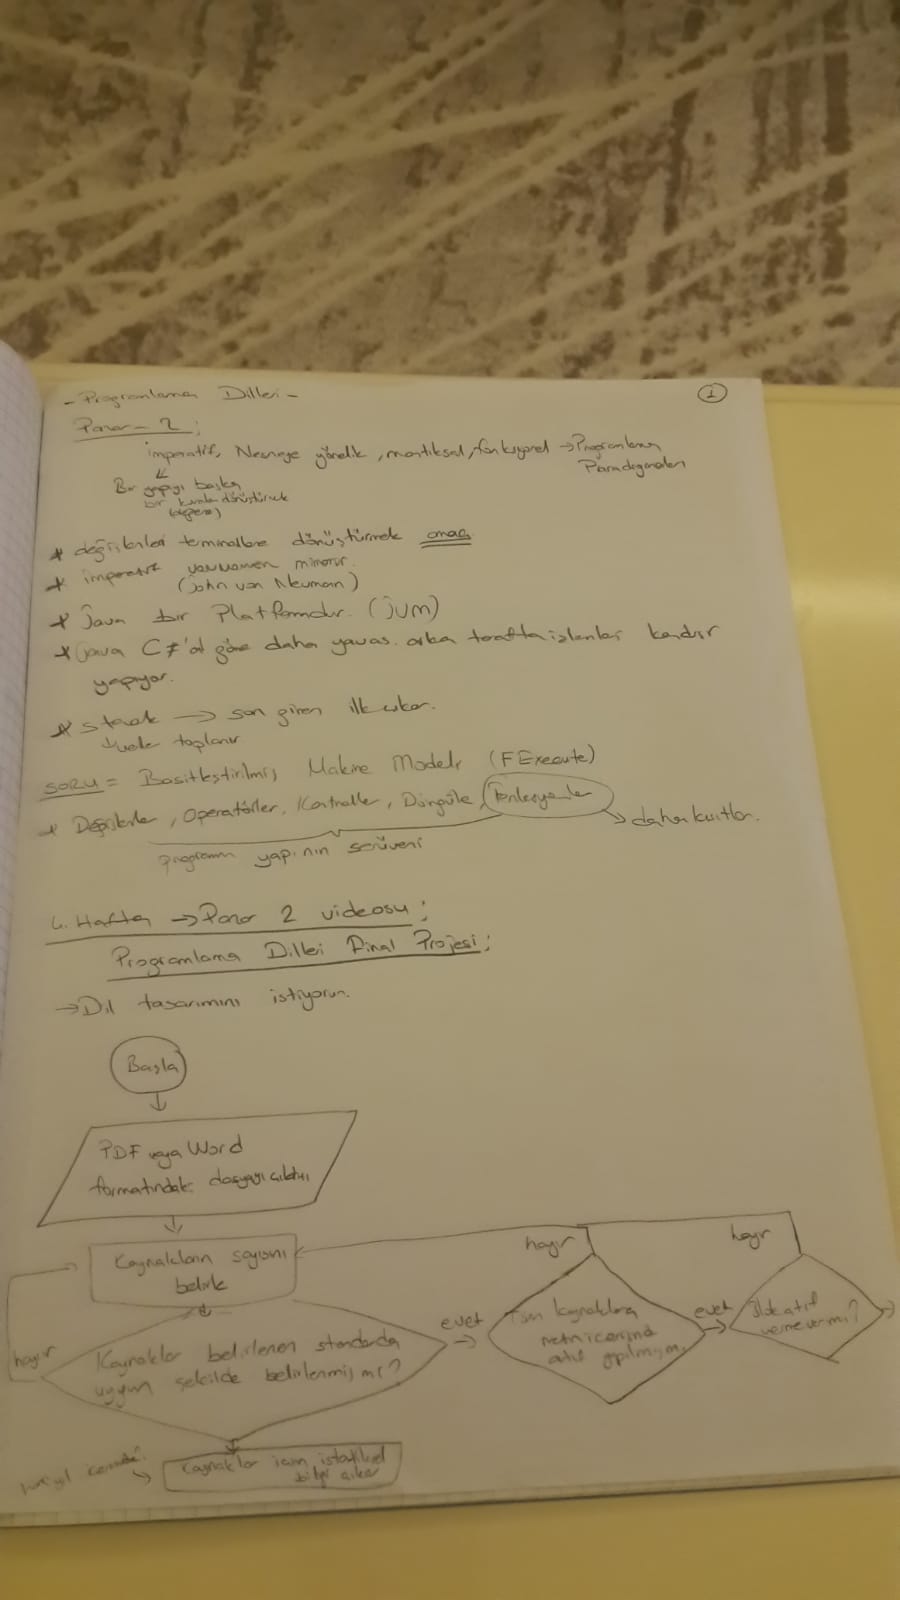 - Programlama Dilleri -
1
Pazar - 2 ;
imperatif, Nesneye yönelik, mantıksal, fonksiyonel → Programlama
Paradigmaları
Bir yapıyı başka
bir kurala dönüştürmek
değişkenleri terminallere dönüştürmek amaç
imperatif vonnoman mimarisi
(John von Neuman)
Java bir Platformdur. (jvm)
Java C#'a göre daha yavaş. arka tarafta işlemleri kendisi
yapıyor.
stack → son giren ilk çıkar.
toplanır
SORU = Basitleştirilmiş Makine Modeli (FExecute)
Değişkenler, Operatörler, Kontroller, Döngüler, Fonksiyonlar
→ daha kısıtlar.
programın yapının serüveni
4. Hafta → Pazar 2 videosu ;
Programlama Dilleri Final Projesi ;
→ Dil tasarımını istiyorum.
Başla
PDF veya Word
formatındaki dosyayı
Kaynakların sayısını
belirle
hayır
hayır
hayır
Kaynaklar belirlenen standarda
uygun şekilde belirlenmiş mi?
evet
Tüm kaynaklara
metin içerisinde
atıf yapılmış mı
evet
atıf
Kaynaklar için istatiksel
bilgi